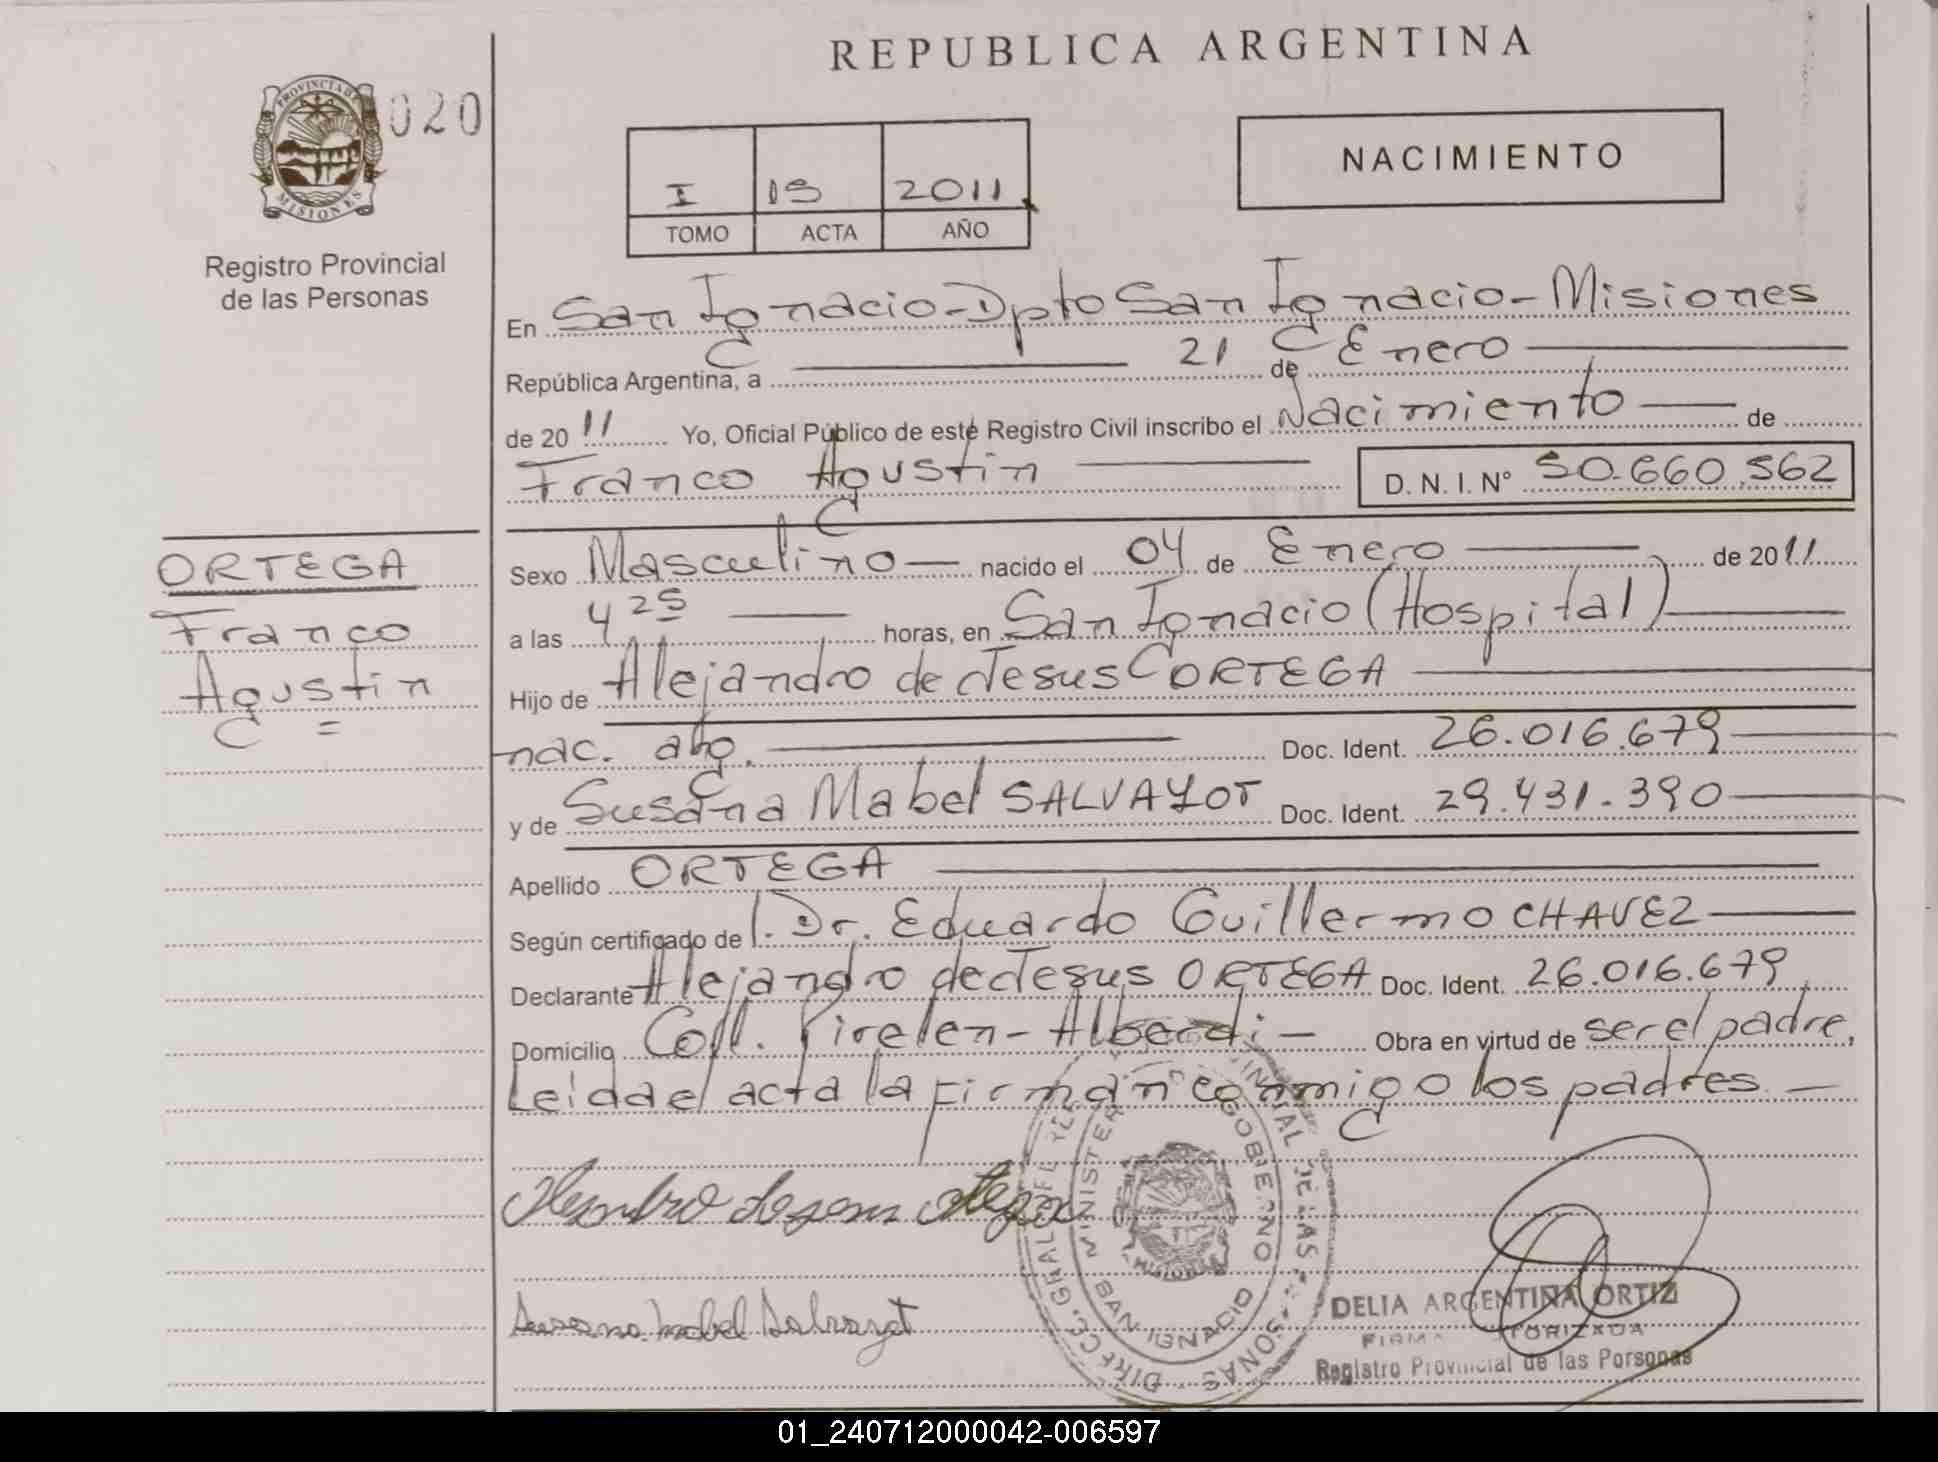 REPUBLICA ARGENTINA
PROVINCIA DE
MISIONES
020
Registro Provincial
de las Personas
I 15 2011
TOMO ACTA AÑO
NACIMIENTO
En San Ignacio - Dpto San Ignacio - Misiones
República Argentina, a 21 de Enero
de 2011 Yo, Oficial Público de este Registro Civil inscribo el Nacimiento de
Franco Agustin D. N. I. N° 50.660.562
ORTEGA
Franco
Agustin
Sexo Masculino nacido el 04 de Enero de 2011
a las 4 25 horas, en San Ignacio (Hospital)
Hijo de Alejandro de Jesus ORTEGA
nac. arg. Doc. Ident. 26.016.679
y de Susana Mabel SALVAYOT Doc. Ident. 29.431.390
Apellido ORTEGA
Según certificado de l. Dr. Eduardo Guillermo CHAVEZ
Declarante Alejandro de Jesus ORTEGA Doc. Ident. 26.016.679
Domicilio Coll. Alberdi - Obra en virtud de ser el padre,
Leida el acta la firman conmigo los padres
MINISTER GOBIERNO
SAN IGNACIO
MISIONES
DELIA ARGENTINA ORTIZ
Registro Provincial de las Personas
01_240712000042-006597